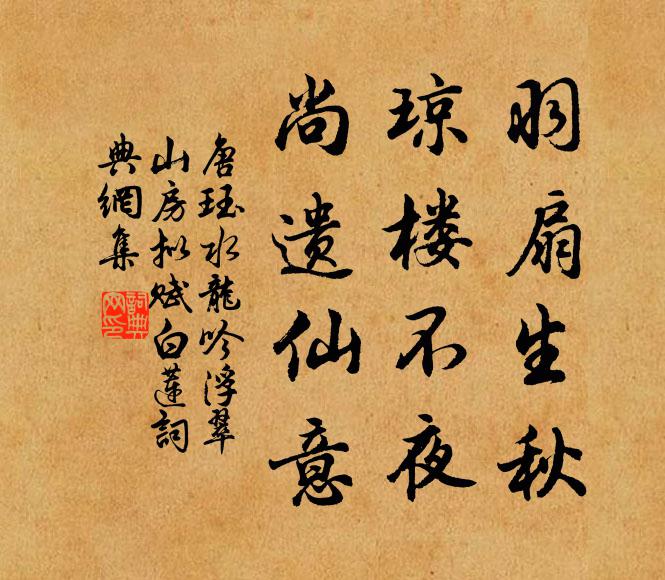 羽扇生秋
琼楼不夜
尚遗仙意
唐珏水龍吟浮翠
山房拟赋白蓮詞
典網集
詞典
网印